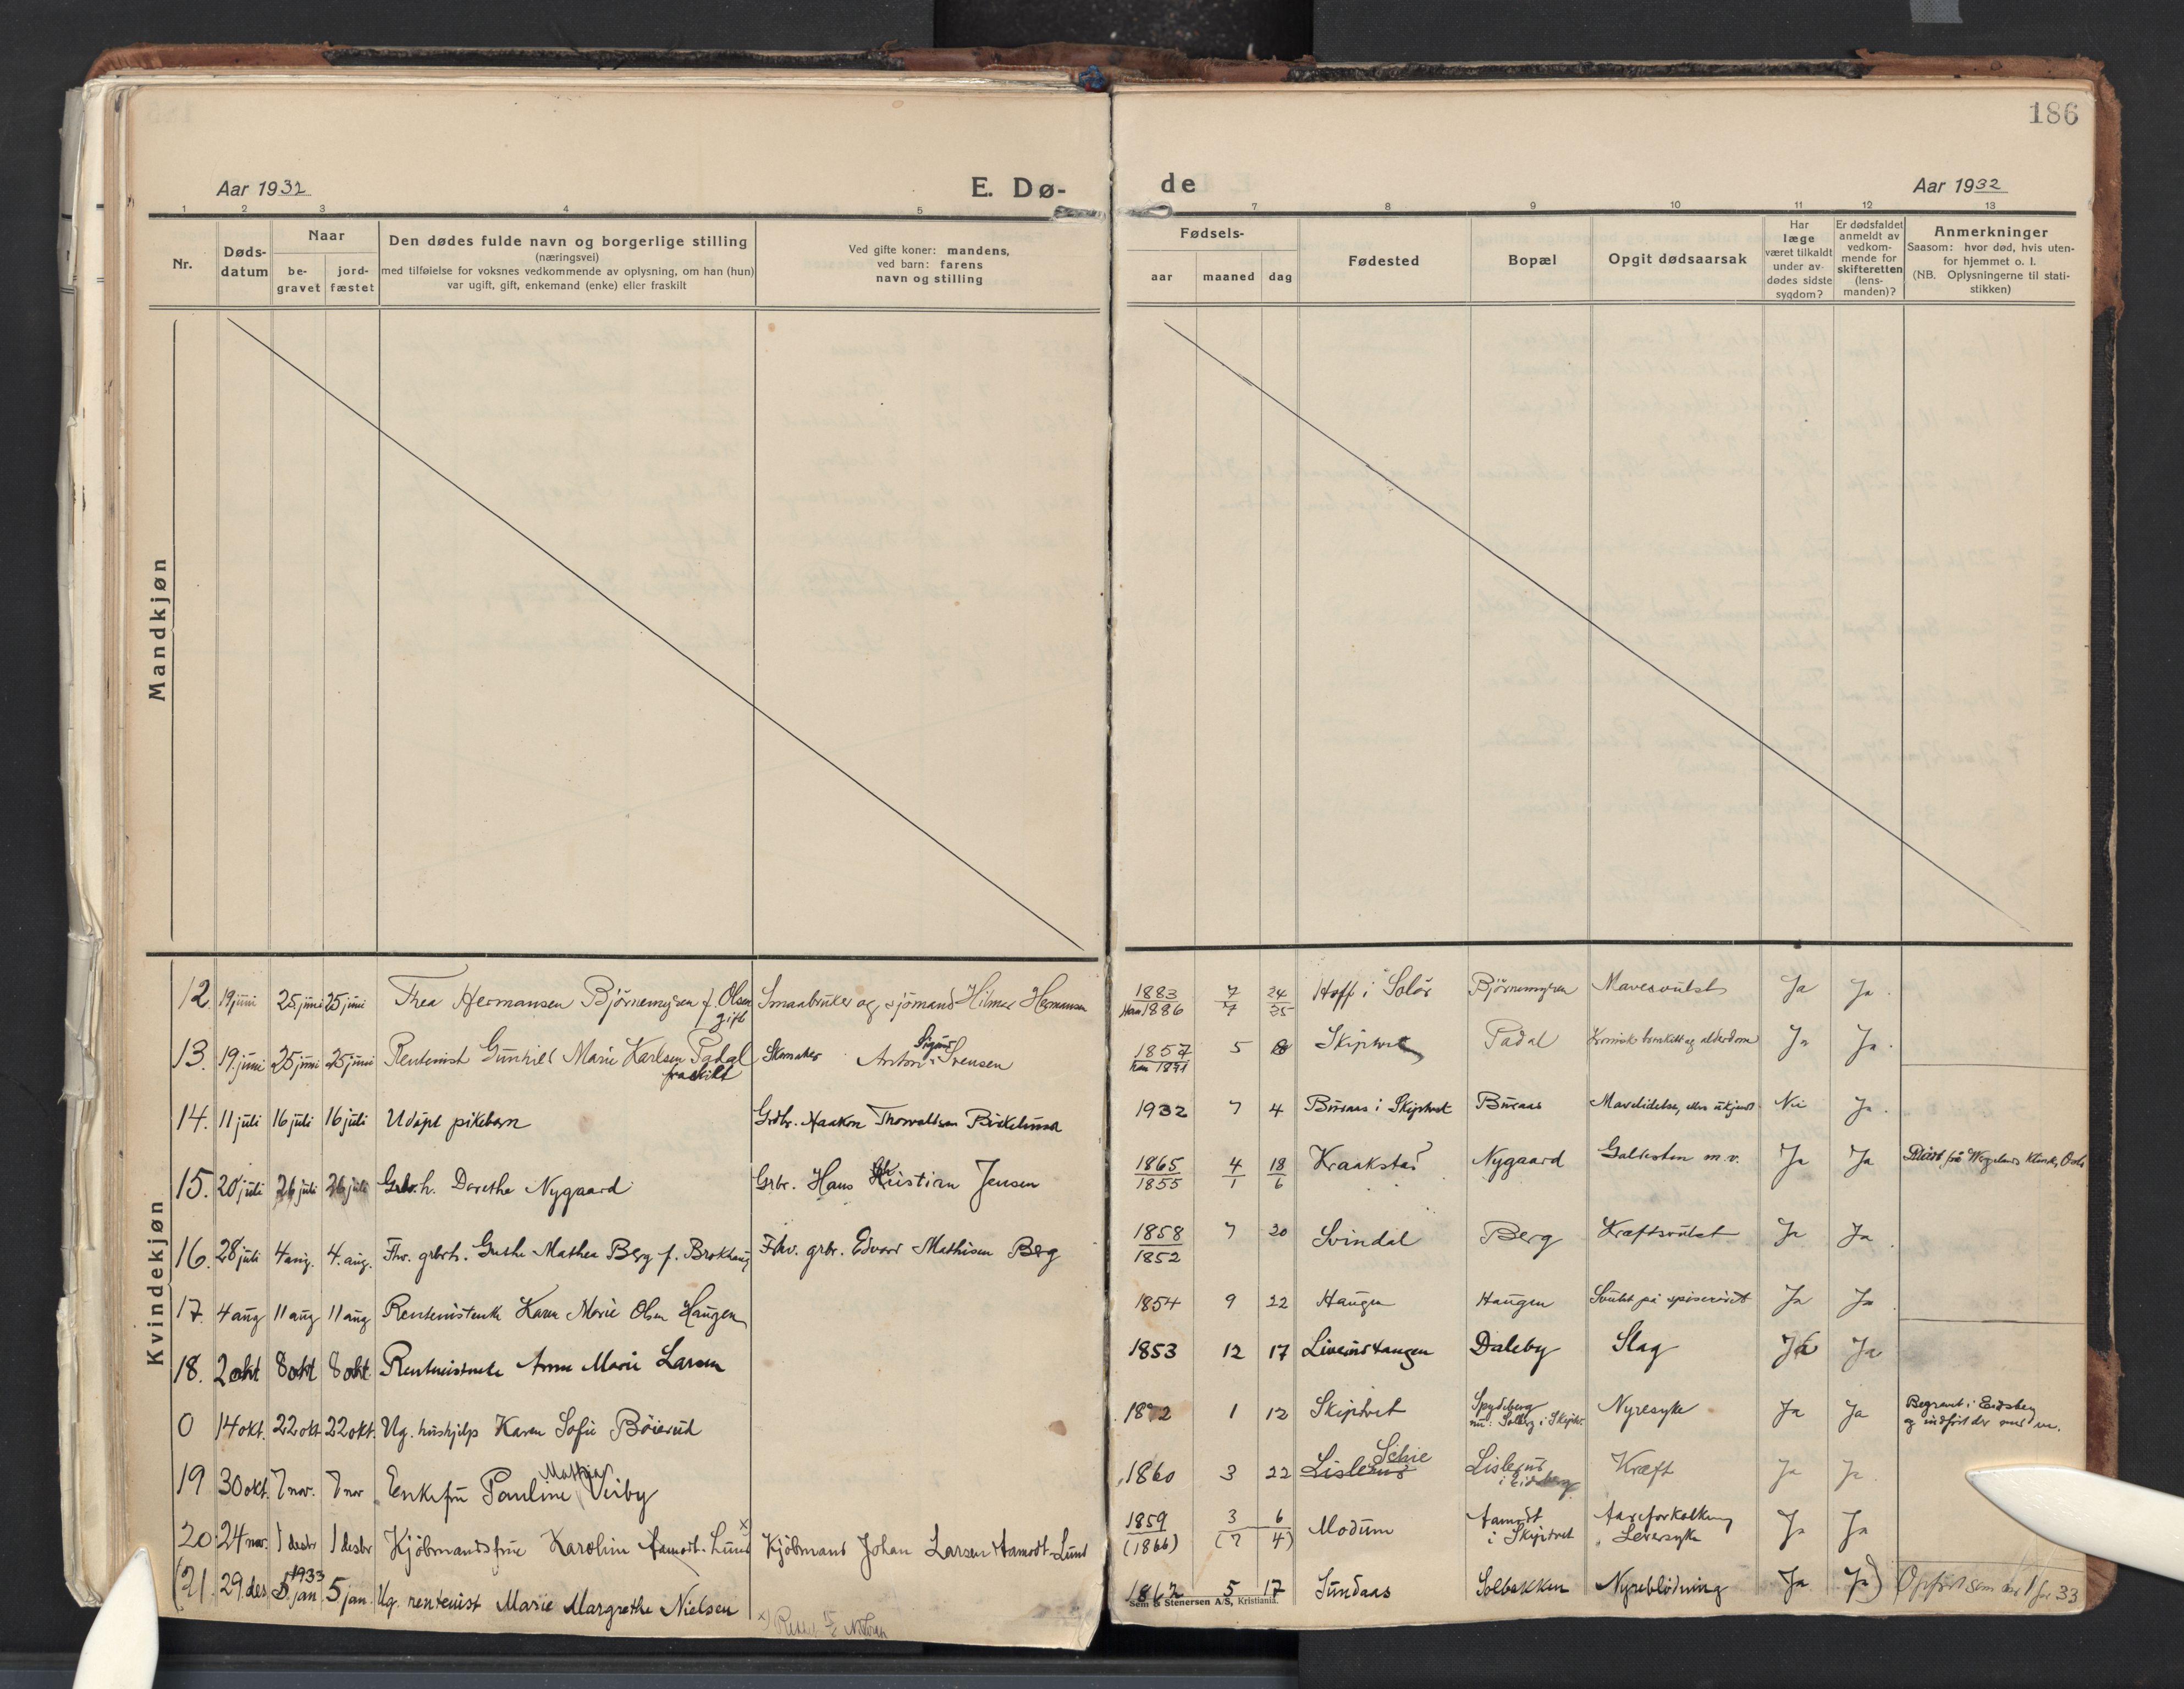 186
Aar 1932
E. Dø-
de
Aar 1932
1 2 3 4 5 7 8 9 10 11 12 13
Nr.
Døds-
datum
Naar
be-
gravet
jord-
fæstet
Den dødes fulde navn og borgerlige stilling
(næringsvei)
med tilføielse for voksnes vedkommende av oplysning, om han (hun)
var ugift, gift, enkemand (enke) eller fraskilt
Ved gifte koner: mandens,
ved barn: farens
navn og stilling
Fødsels-
aar maaned dag
Fødested
Bopæl
Opgit dødsaarsak
Har
læge
været tilkaldt
under av-
dødes sidste
sygdom?
Er dødsfaldet
anmeldt av
vedkom-
mende for
skifteretten
(lens-
manden)?
Anmerkninger
Saasom: hvor død, hvis uten-
for hjemmet o. l.
(NB. Oplysningerne til stati-
stikken)
Mandkjøn
Kvindekjøn
12 19 juni 25 juni 25 juni Thea Hermansen Björnemyren f. Olsen Smaabruker og sjömand Hilmar Hermansen 1883 7 24 Hoff i Solör Björnemyren Mavesvulst Ja Ja.
gift 1886 7 25
13. 19. juni 25 juni 25 juni Rentenist Gunhild Marie Karlsen Padal Skomaker Anton Sigurd Svensen 1857 5 Skiptvet Padal Kronisk bronkitt og alderdom Ja Ja.
fraskilt
14. 11 juli 16 juli 16 juli Udöpt pikebarn Grdbr. Haakon Thorvaldsen Birkelund 1932 7 4 Buraas i Skiptvet Buraas Mavelidelse, eller ukjendt Nei Ja.
15. 20 juli 26 juli 26 juli Grbr.h. Dorethe Nygaard Grbr. Hans Kristian Jensen 1865 4 18 Kraakstad Nygaard Galdesten m.v. Ja Ja Oslo
1855 1 6
16. 28 juli 4 aug. 4. aug. Fhv. grbrh. Mathea Berg f. Fhv. grbr. Edvard Mathisen Berg 1858 7 20 Svindal Berg Kræftsvulst Ja Ja.
1852
17. 4 aug 11 aug 11 aug Rentenistenke Karen Marie Olsen Haugen 1854 9 22 Haugen Haugen Svulst på spiserøret Ja Ja
18. 2 okt 8 okt 8 okt. Rentenistenke Anne Marie Larsen 1853 12 17 Daleby Slag Ja Ja
0 14 okt. 22 okt 22 okt. Ug. hushjelp Karen Sofie Böierud 1872 1 12 Skiptvet Spydeberg Nyresyke Ja Ja Begravet i Eidsberg
nu: Solberg i Skiptv. og indført der med nr.
19 30 okt. 7 nov. 7 nov Enkefru Pauline Mathea Virby 1860 3 22 Lislerud Lislerud Kræft Ja Ja.
i Eidsberg
20 24 nov. 1 desbr 1 desbr Kjöbmandsfrue Karoline Aamodt-Lund x) Kjöbmand Johan Larsen Aamodt-Lund 1859 3 6 Modum Aamodt Aareforkalkning Ja Ja
(1866) (7 4) i Skiptvet Leversyke
1933
(21. 29 des 5. jan 5 jan. Ug. rentenist Marie Margrethe Nielsen 1862 5 17 Sundaas Solbakken Nyreblödning Ja Ja) Opført som nr 1 for 33
Sem & Stenersen A/S, Kristiania.